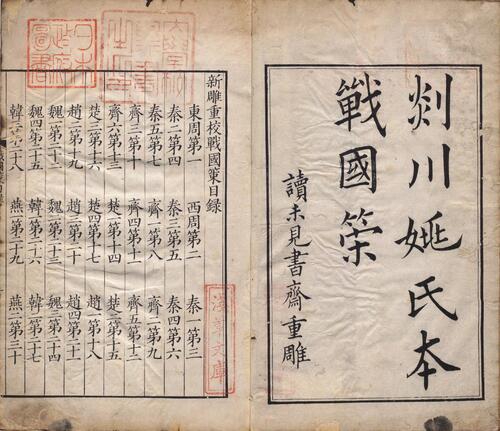 剡川姚氏本
戰國策
讀未見書齋重雕
新雕重校戰國策目錄
東周第一 西周第二 秦一第三
秦二第四 秦三第五 秦四第六
秦五第七 齊一第八 齊二第九
齊三第十 齊四第十一 齊五第十二
齊六第十三 楚一第十四 楚二第十五
楚三第十六 楚四第十七 趙一第十八
趙二第十九 趙三第二十 趙四第二十一
魏一第二十二 魏二第二十三 魏三第二十四
魏四第二十五 韓一第二十六 韓二第二十七
韓三第二十八 燕一第二十九 燕二第三十
淺草文庫
日本政府圖書